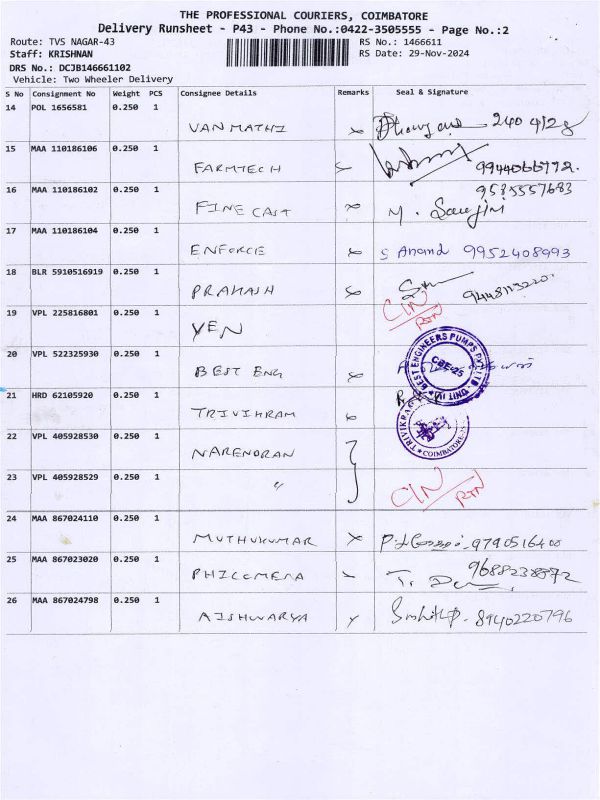 THE PROFESSIONAL COURIERS, COIMBATORE
Delivery Runsheet - P43 - Phone No.:0422-3505555 - Page No.:2
Route: TVS NAGAR-43
RS No.: 1466611
Staff: KRISHNAN
RS Date: 29-Nov-2024
DRS No.: DCJB146661102
Vehicle: Two Wheeler Delivery
S No Consignment No Weight PCS Consignee Details Remarks Seal & Signature
14 POL 1656581 0.250 1
VANMATHI
15 MAA 110186106 0.250 1
FARMTECH 9944066772.
16 MAA 110186102 0.250 1 9585557683
FINE CAST M.
17 MAA 110186104 0.250 1
ENFORCE S Anand 9952408993
18 BLR 5910516919 0.250 1
PRAKASH
19 VPL 225816801 0.250 1 C/N
YEN RTN
20 VPL 522325930 0.250 1
BEST ENG
BEST ENGINEERS PUMPS PVT LTD
CBE-25
UNIT IV
21 HRD 62105920 0.250 1
TRIVIKRAM
COIMBATORE
22 VPL 405928530 0.250 1
NARENDRAN
23 VPL 405928529 0.250 1
" C/N RTN
24 MAA 867024110 0.250 1
MUTHUKUMAR 9790516400
25 MAA 867023020 0.250 1
PHILOMENA
26 MAA 867024798 0.250 1
AISHWARYA 8940220796